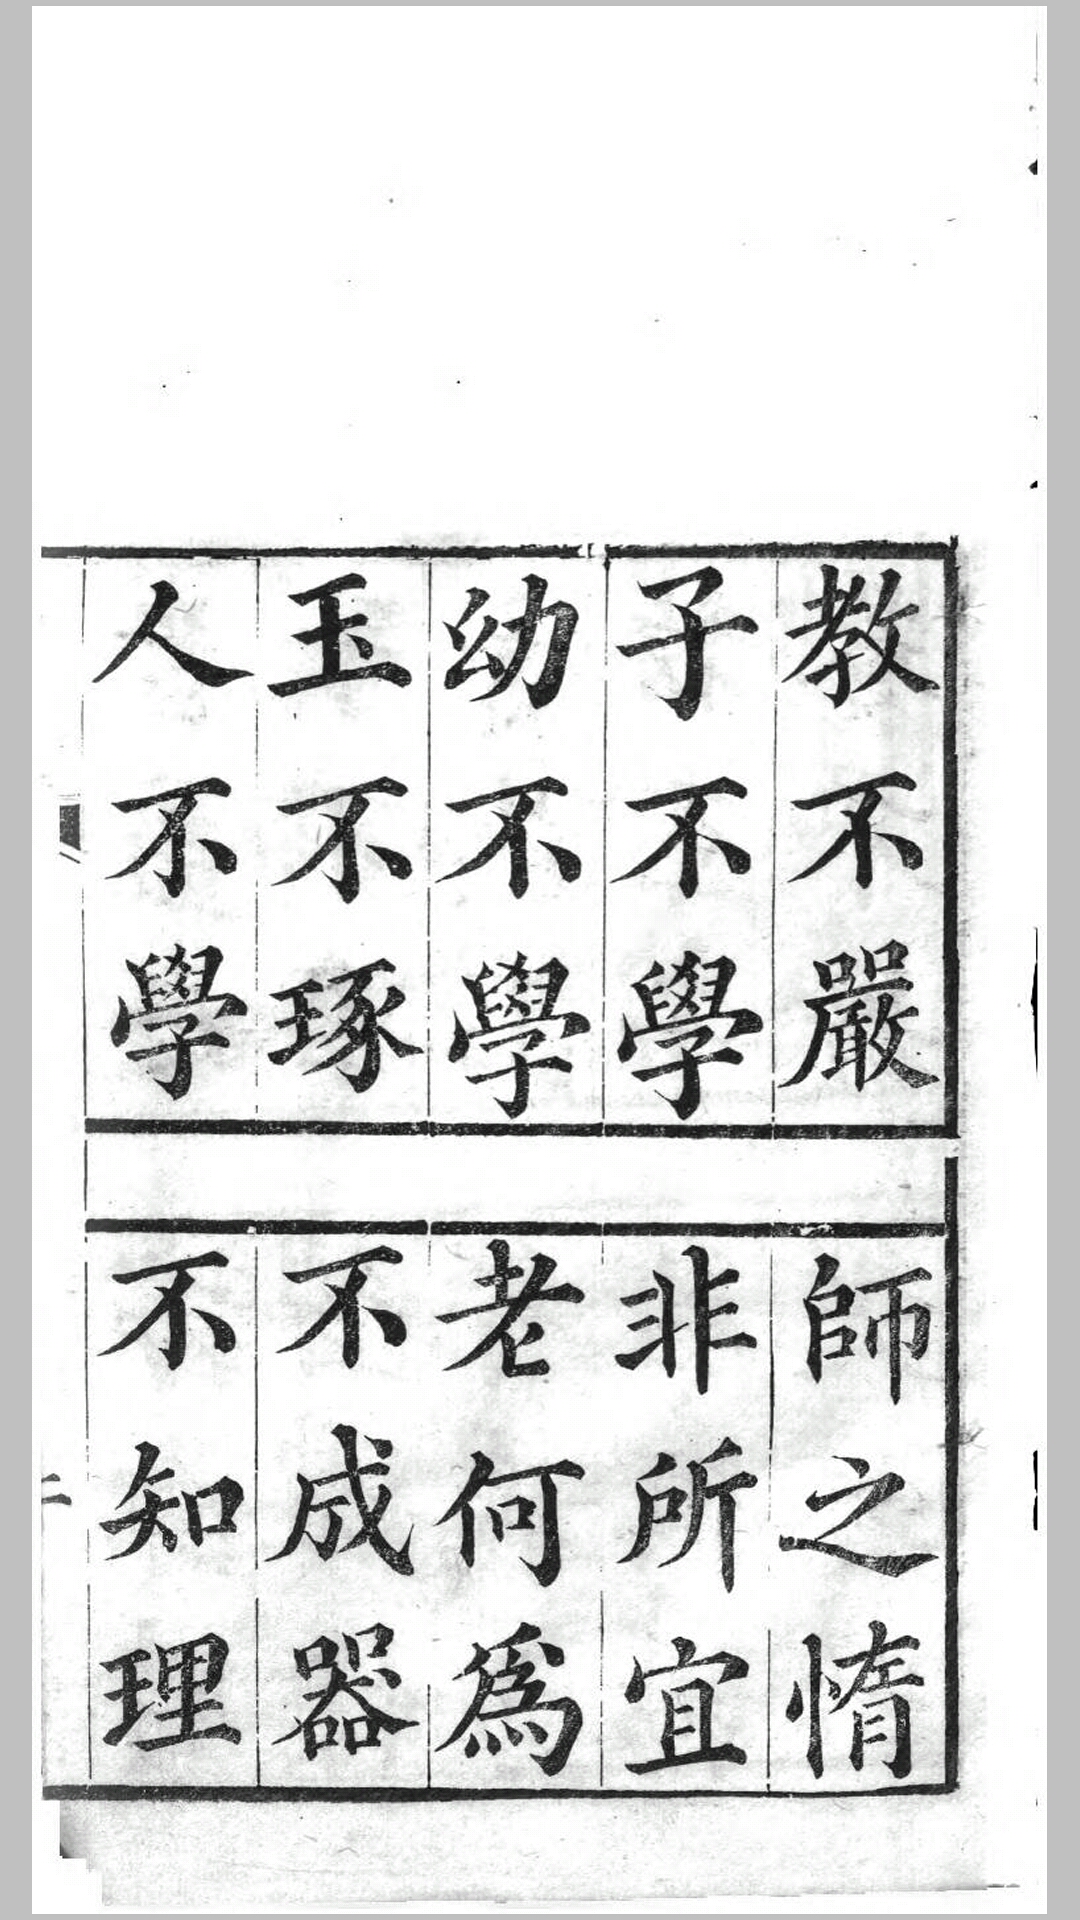 教不嚴
師之惰
子不學
非所宜
幼不學
老何爲
玉不琢
不成器
人不學
不知理